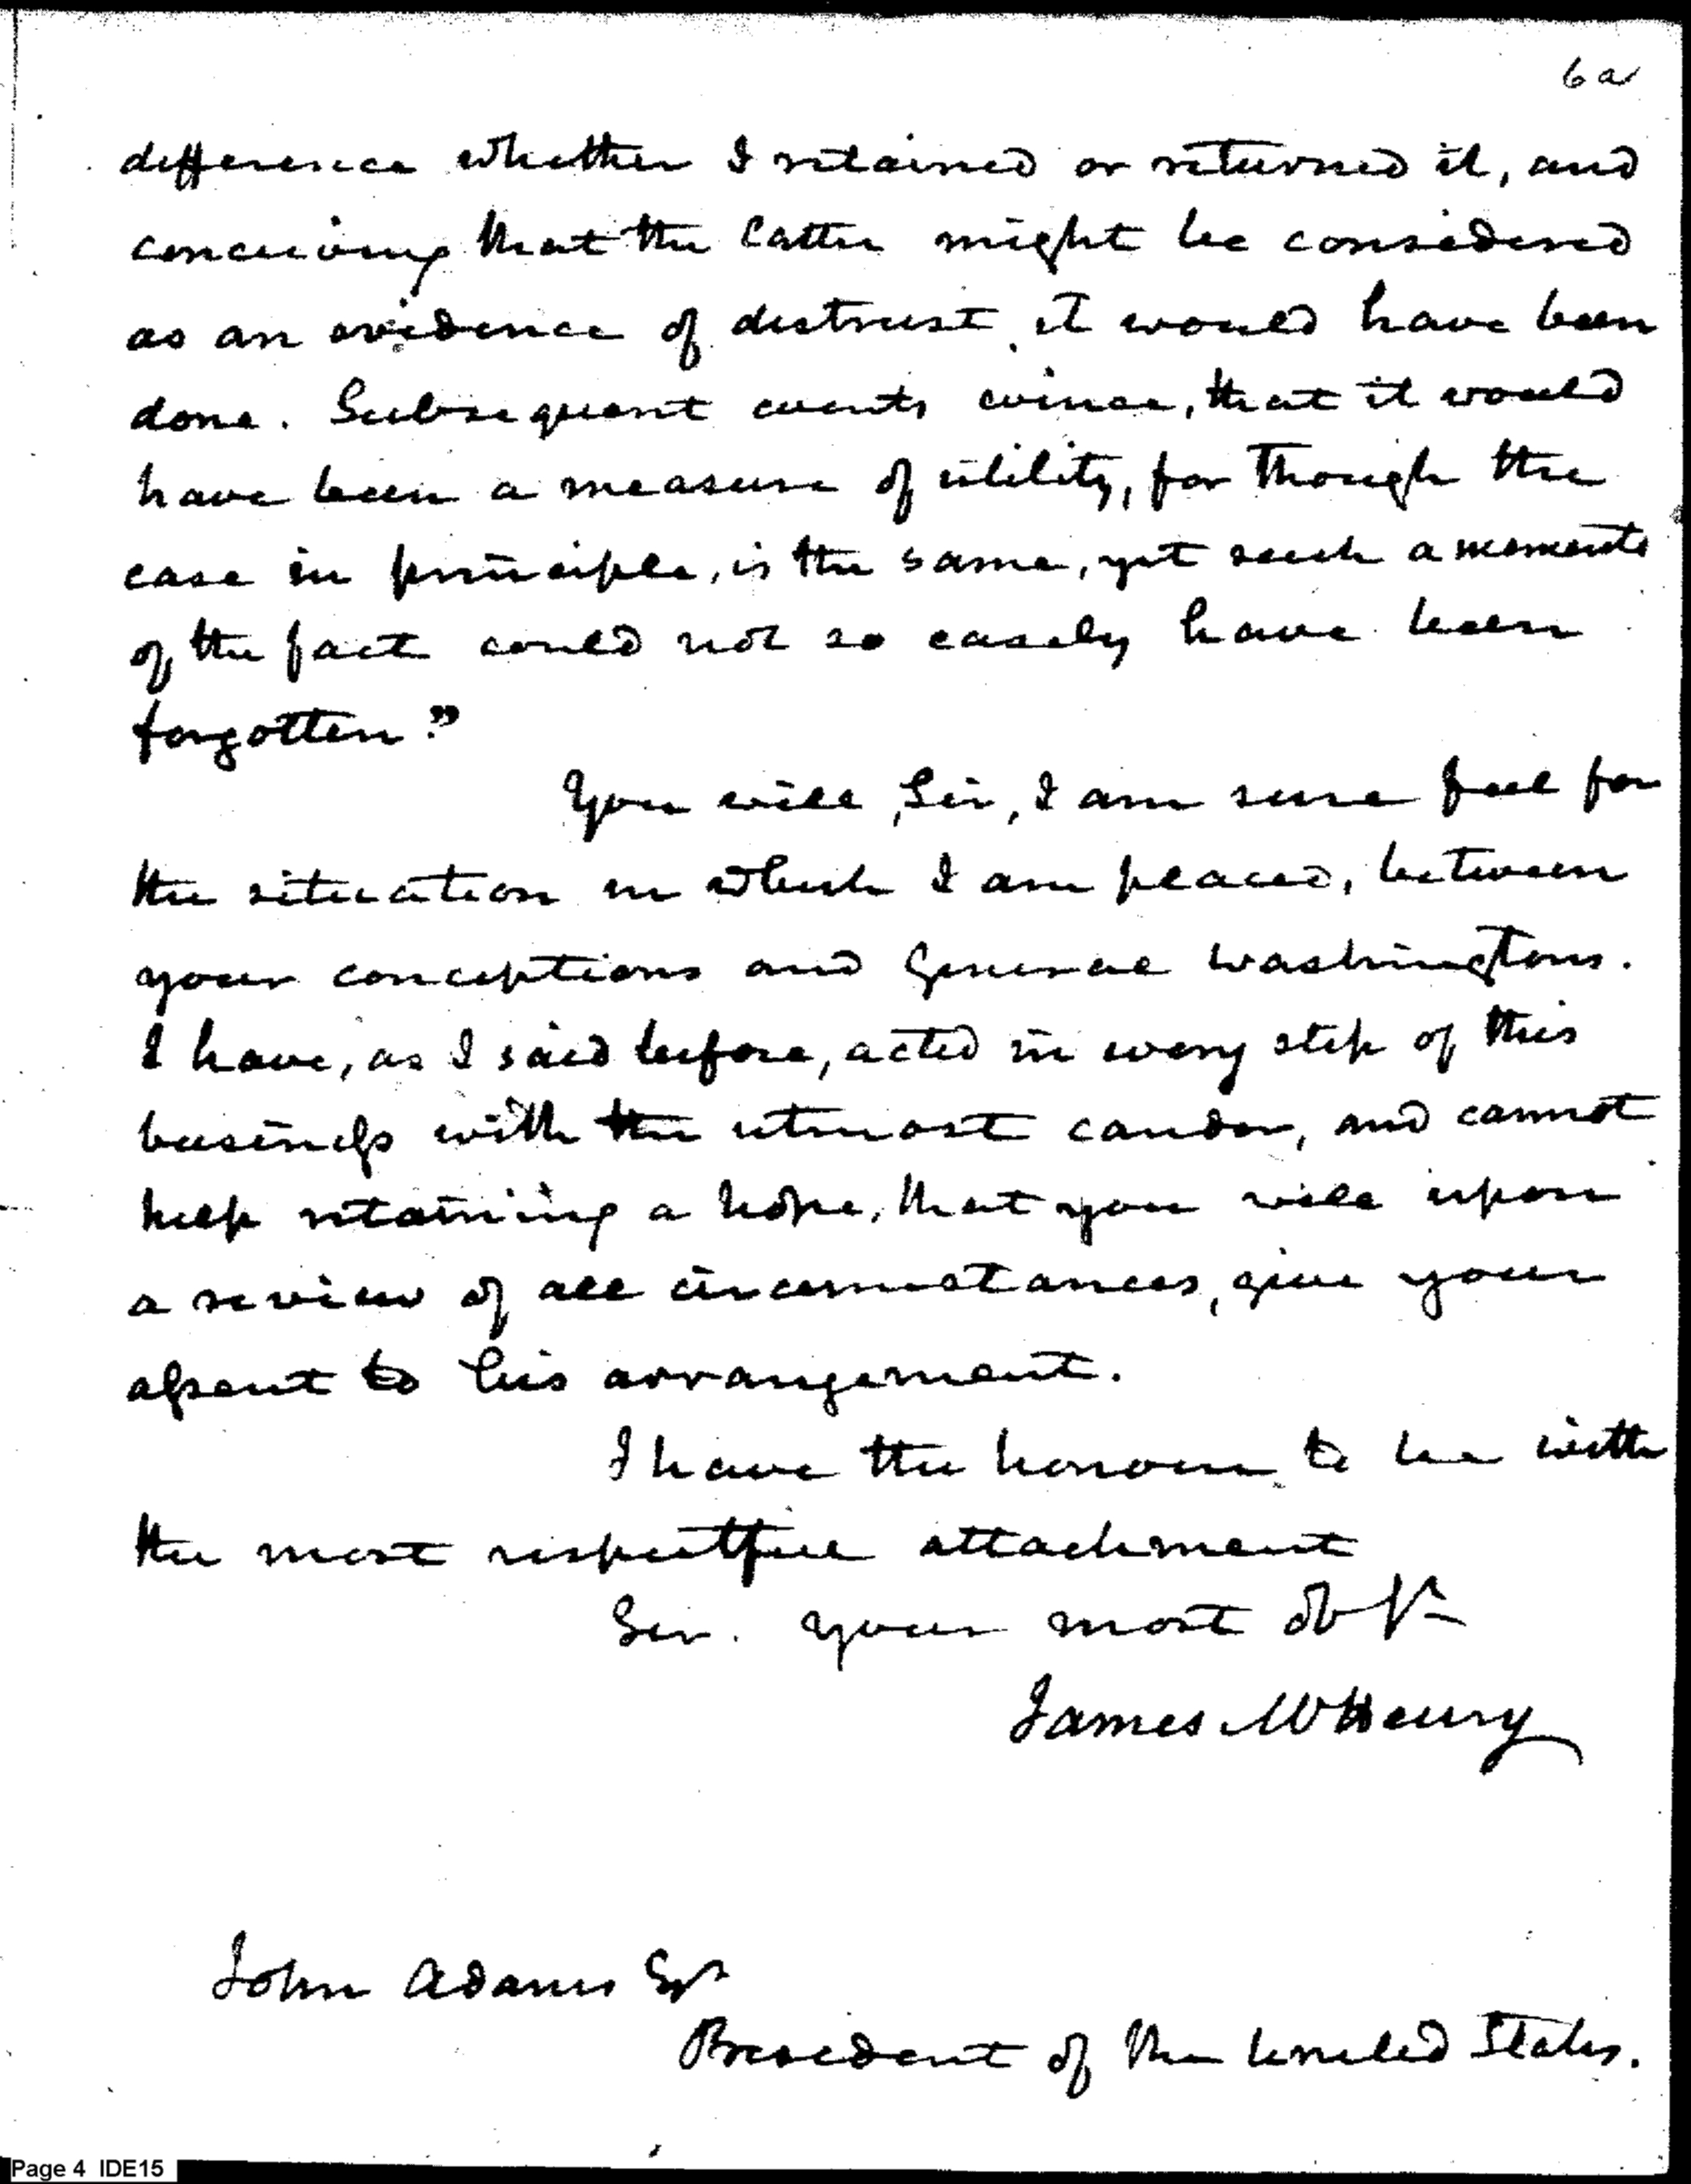 6a
difference whether I retained or returned it, and
conceiving that the latter might be considered
as an evidence of distrust it would have been
done. Subsequent events evince, that it would
have been a measure of utility, for though the
case in principle, is the same, yet such a memento
of the fact could not so easely have been
forgotten."
You will, Sir, I am sure feel for
the situation in which I am placed, between
your conceptions and General Washingtons.
I have, as I said before, acted in every step of this
business with the utmost candor, and cannot
help retaining a hope, that you will upon
a review of all circumstances, give your
assent to his arrangement.
I have the honour to be with
the most respectful attachment
Sir. your most ob St
James McHenry
John Adams Esqr
President of the United States.
Page 4 IDE15